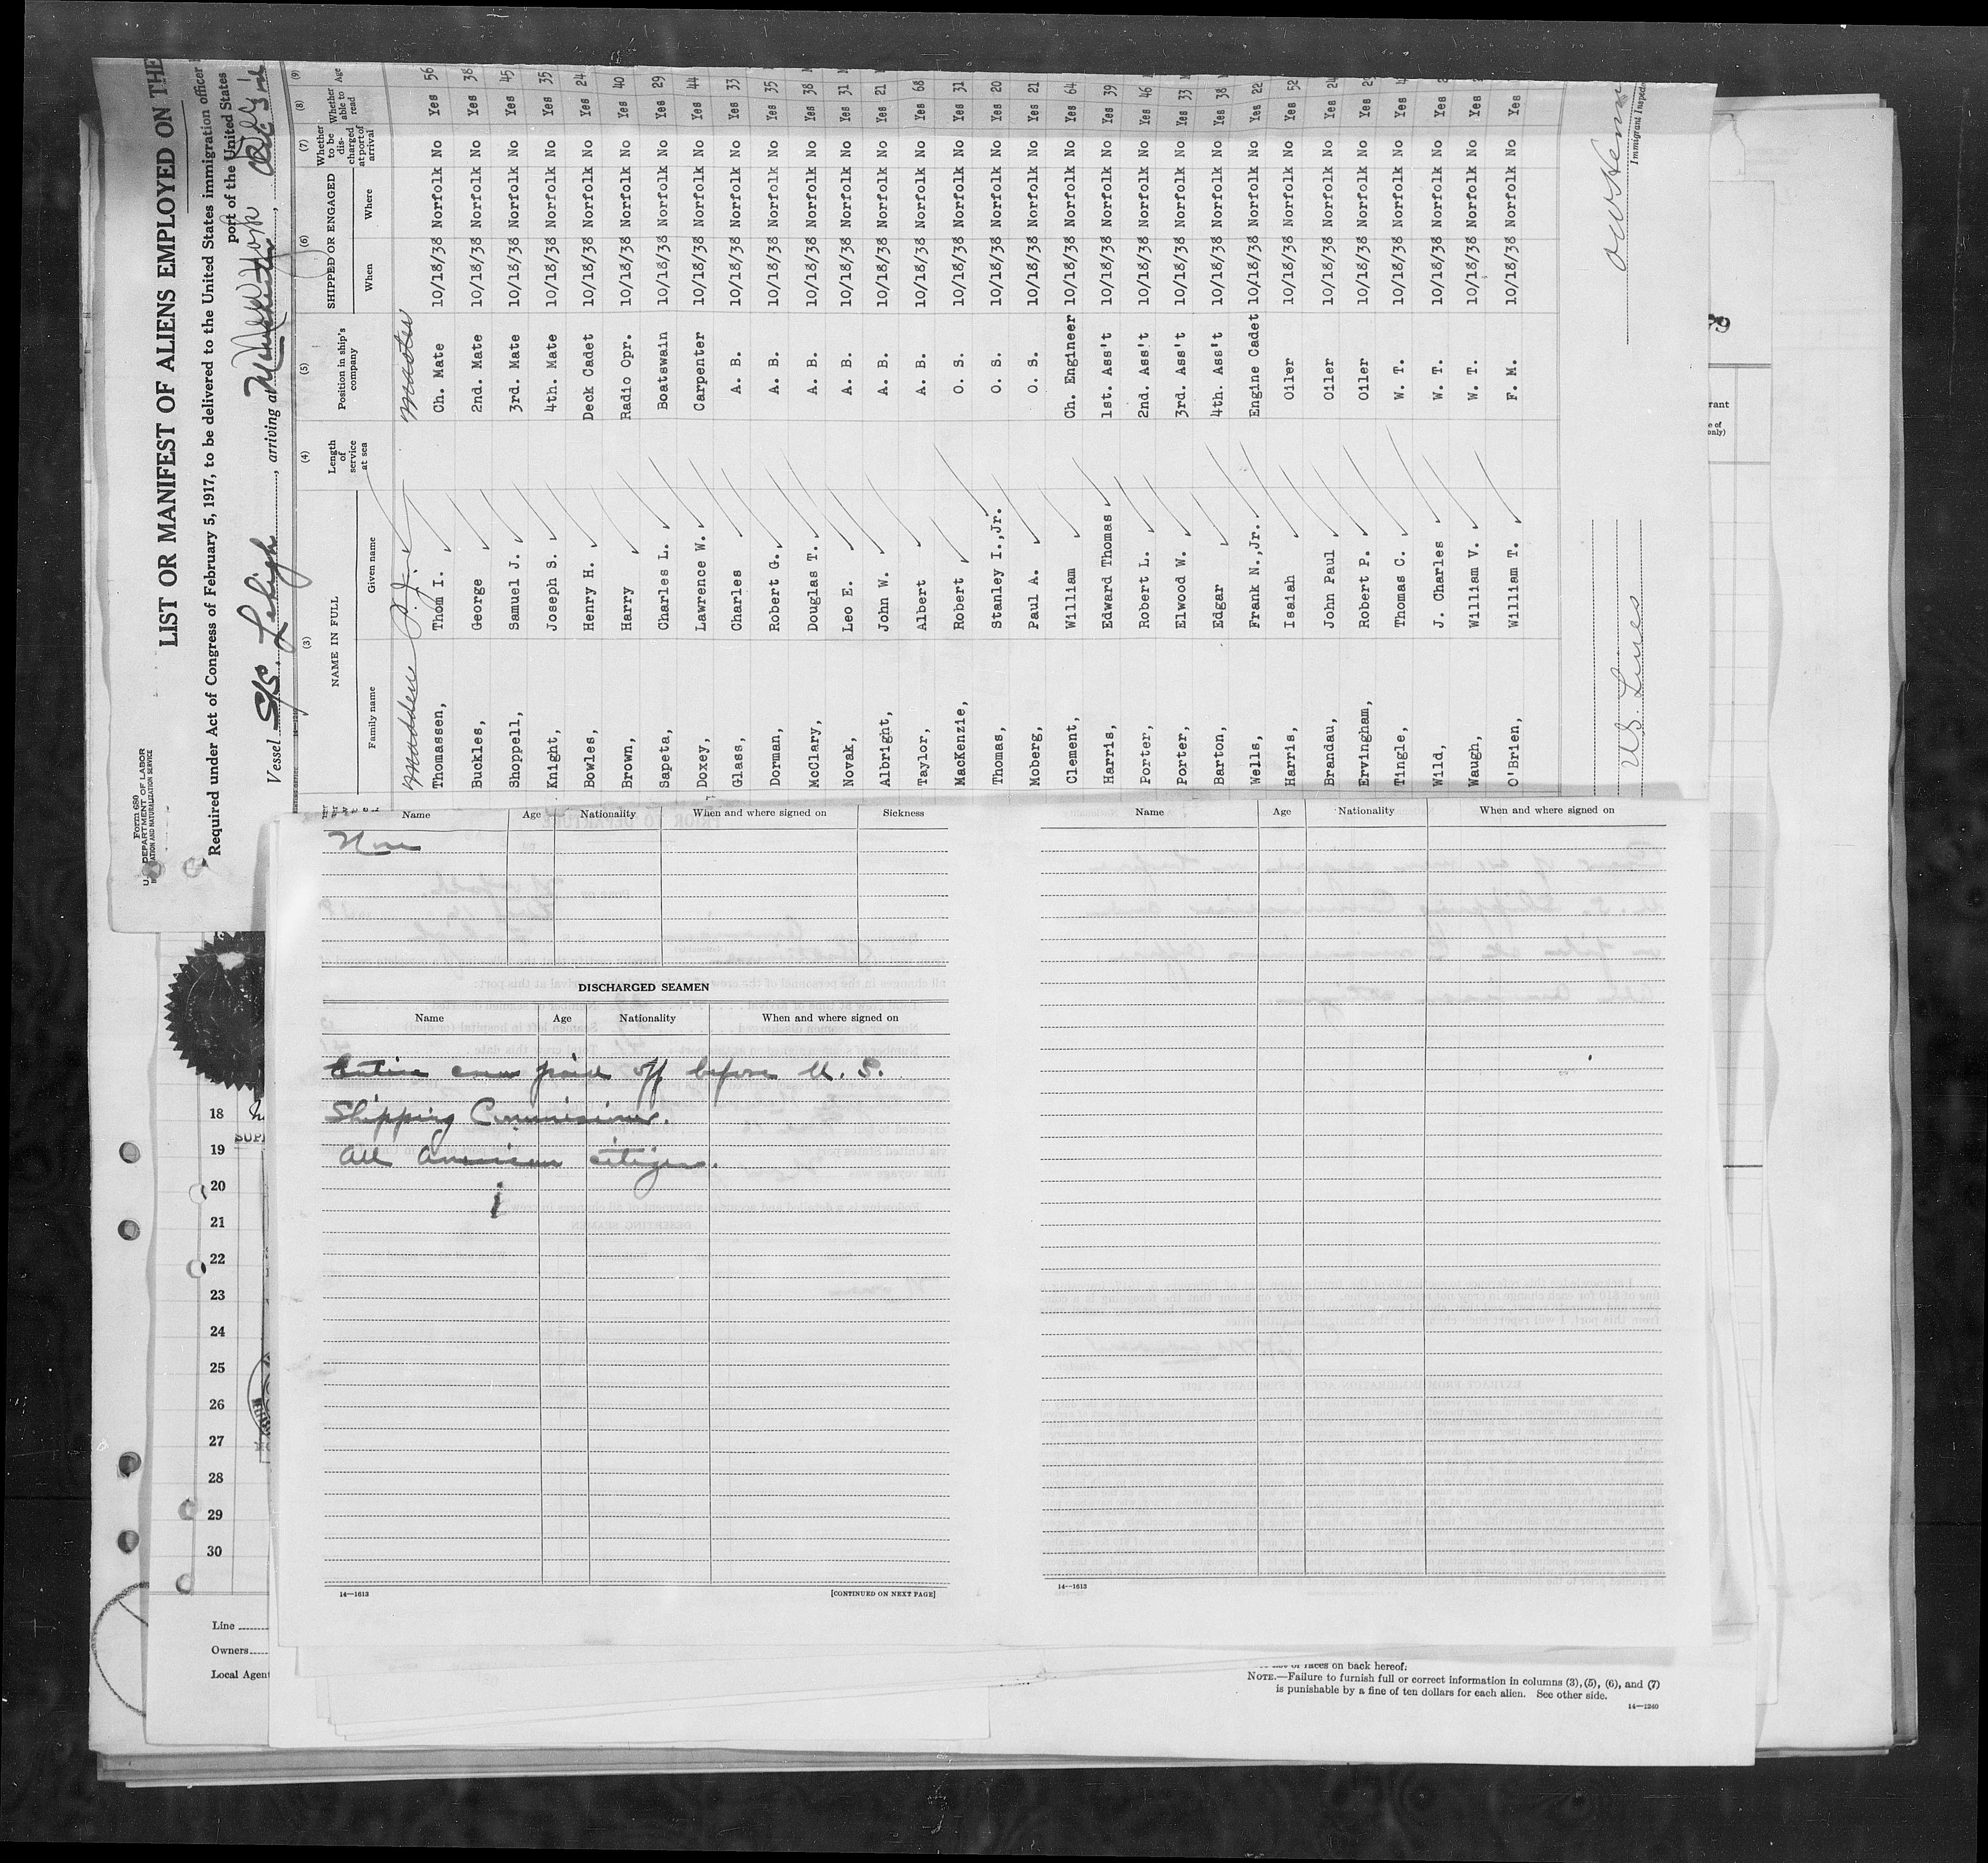 Form 680
U. S. DEPARTMENT OF LABOR
IMMIGRATION AND NATURALIZATION SERVICE
LIST OR MANIFEST OF ALIENS EMPLOYED ON THE
Required under Act of Congress of February 5, 1917, to be delivered to the United States immigration officer
port of the United States
Vessel S/S. Lehigh, arriving at New York
(3) (4) (5) (6) (7) (8) (9)
NAME IN FULL
Family name Given name
Length of service at sea
Position in ship's company
SHIPPED OR ENGAGED
When Where
Whether to be discharged at port of arrival
Whether able to read
Age
Madden P. J. Master
Thomassen, Thom I. Ch. Mate 10/18/38 Norfolk No Yes 56
Buckles, George 2nd. Mate 10/18/38 Norfolk No Yes 38
Shoppell, Samuel J. 3rd. Mate 10/18/38 Norfolk No Yes 45
Knight, Joseph S. 4th. Mate 10/18/38 Norfolk No Yes 35
Bowles, Henry H. Deck Cadet 10/18/38 Norfolk No Yes 24
Brown, Harry Radio Opr. 10/18/38 Norfolk No Yes 40
Sapeta, Charles L. Boatswain 10/18/38 Norfolk No Yes 29
Doxey, Lawrence W. Carpenter 10/18/38 Norfolk No Yes 44
Glass, Charles A. B. 10/18/38 Norfolk No Yes 33
Dorman, Robert G. A. B. 10/18/38 Norfolk No Yes 35
McClary, Douglas T. A. B. 10/18/38 Norfolk No Yes 38
Novak, Leo E. A. B. 10/18/38 Norfolk No Yes 31
Albright, John W. A. B. 10/18/38 Norfolk No Yes 21
Taylor, Albert A. B. 10/18/38 Norfolk No Yes 68
MacKenzie, Robert O. S. 10/18/38 Norfolk No Yes 31
Thomas, Stanley I.,Jr. O. S. 10/18/38 Norfolk No Yes 20
Moberg, Paul A. O. S. 10/18/38 Norfolk No Yes 21
Clement, William Ch. Engineer 10/18/38 Norfolk No Yes 64
Harris, Edward Thomas 1st. Ass't 10/18/38 Norfolk No Yes 39
Porter, Robert L. 2nd. Ass't 10/18/38 Norfolk No Yes 46
Porter, Elwood W. 3rd. Ass't 10/18/38 Norfolk No Yes 33
Barton, Edgar 4th. Ass't 10/18/38 Norfolk No Yes 38
Wells, Frank N.,Jr. Engine Cadet 10/18/38 Norfolk No Yes 22
Harris, Isaiah Oiler 10/18/38 Norfolk No Yes 52
Brandau, John Paul Oiler 10/18/38 Norfolk No Yes
Ervingham, Robert P. Oiler 10/18/38 Norfolk No Yes
Tingle, Thomas C. W. T. 10/18/38 Norfolk No Yes
Wild, J. Charles W. T. 10/18/38 Norfolk No Yes
Waugh, William V. W. T. 10/18/38 Norfolk No Yes
O'Brien, William T. F. M. 10/18/38 Norfolk No Yes
U.S. Lines
Immigrant Inspector
Name Age Nationality When and where signed on Sickness
None
DISCHARGED SEAMEN
Name Age Nationality When and where signed on
Entire crew paid off before U. S.
Shipping Commissioner.
All American citizens.
14—1613 [CONTINUED ON NEXT PAGE]
Name Age Nationality When and where signed on
14—1613
18
19
20
21
22
23
24
25
26
27
28
29
30
Line
Owners
Local Agent
races on back hereof.
NOTE.—Failure to furnish full or correct information in columns (3), (5), (6), and (7)
is punishable by a fine of ten dollars for each alien. See other side.
14—1240